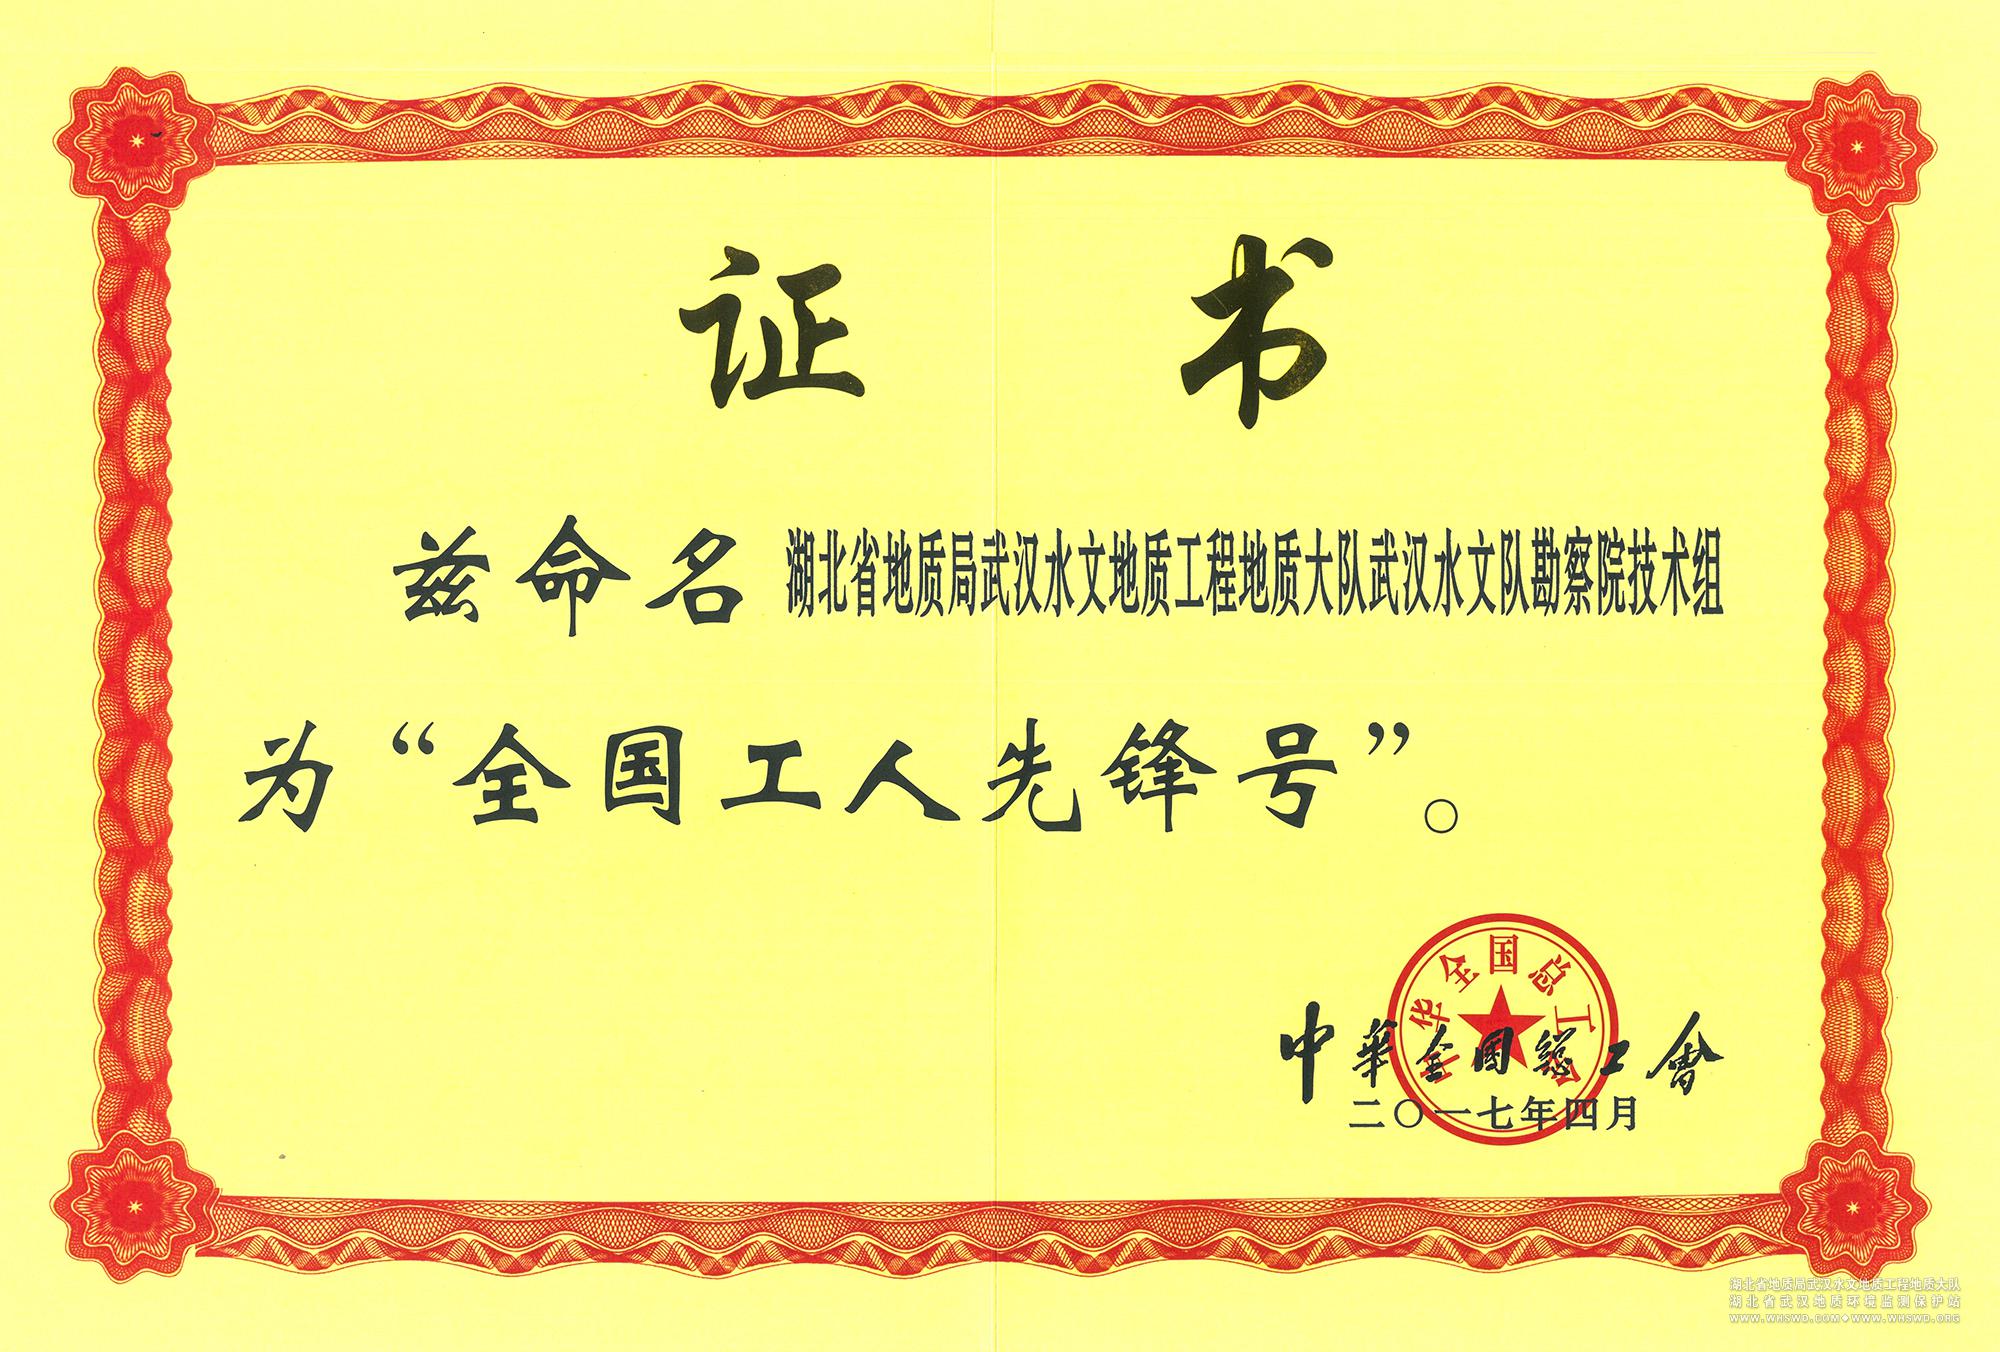 证 书
兹命名 湖北省地质局武汉水文地质工程地质大队武汉水文队勘察院技术组
为“全国工人先锋号”。
中华全国总工会
中華全国總工會
二〇一七年四月
湖北省地质局武汉水文地质工程地质大队
湖北省武汉地质环境监测保护站
WWW.WHSWD.COM◆WWW.WHSWD.ORG